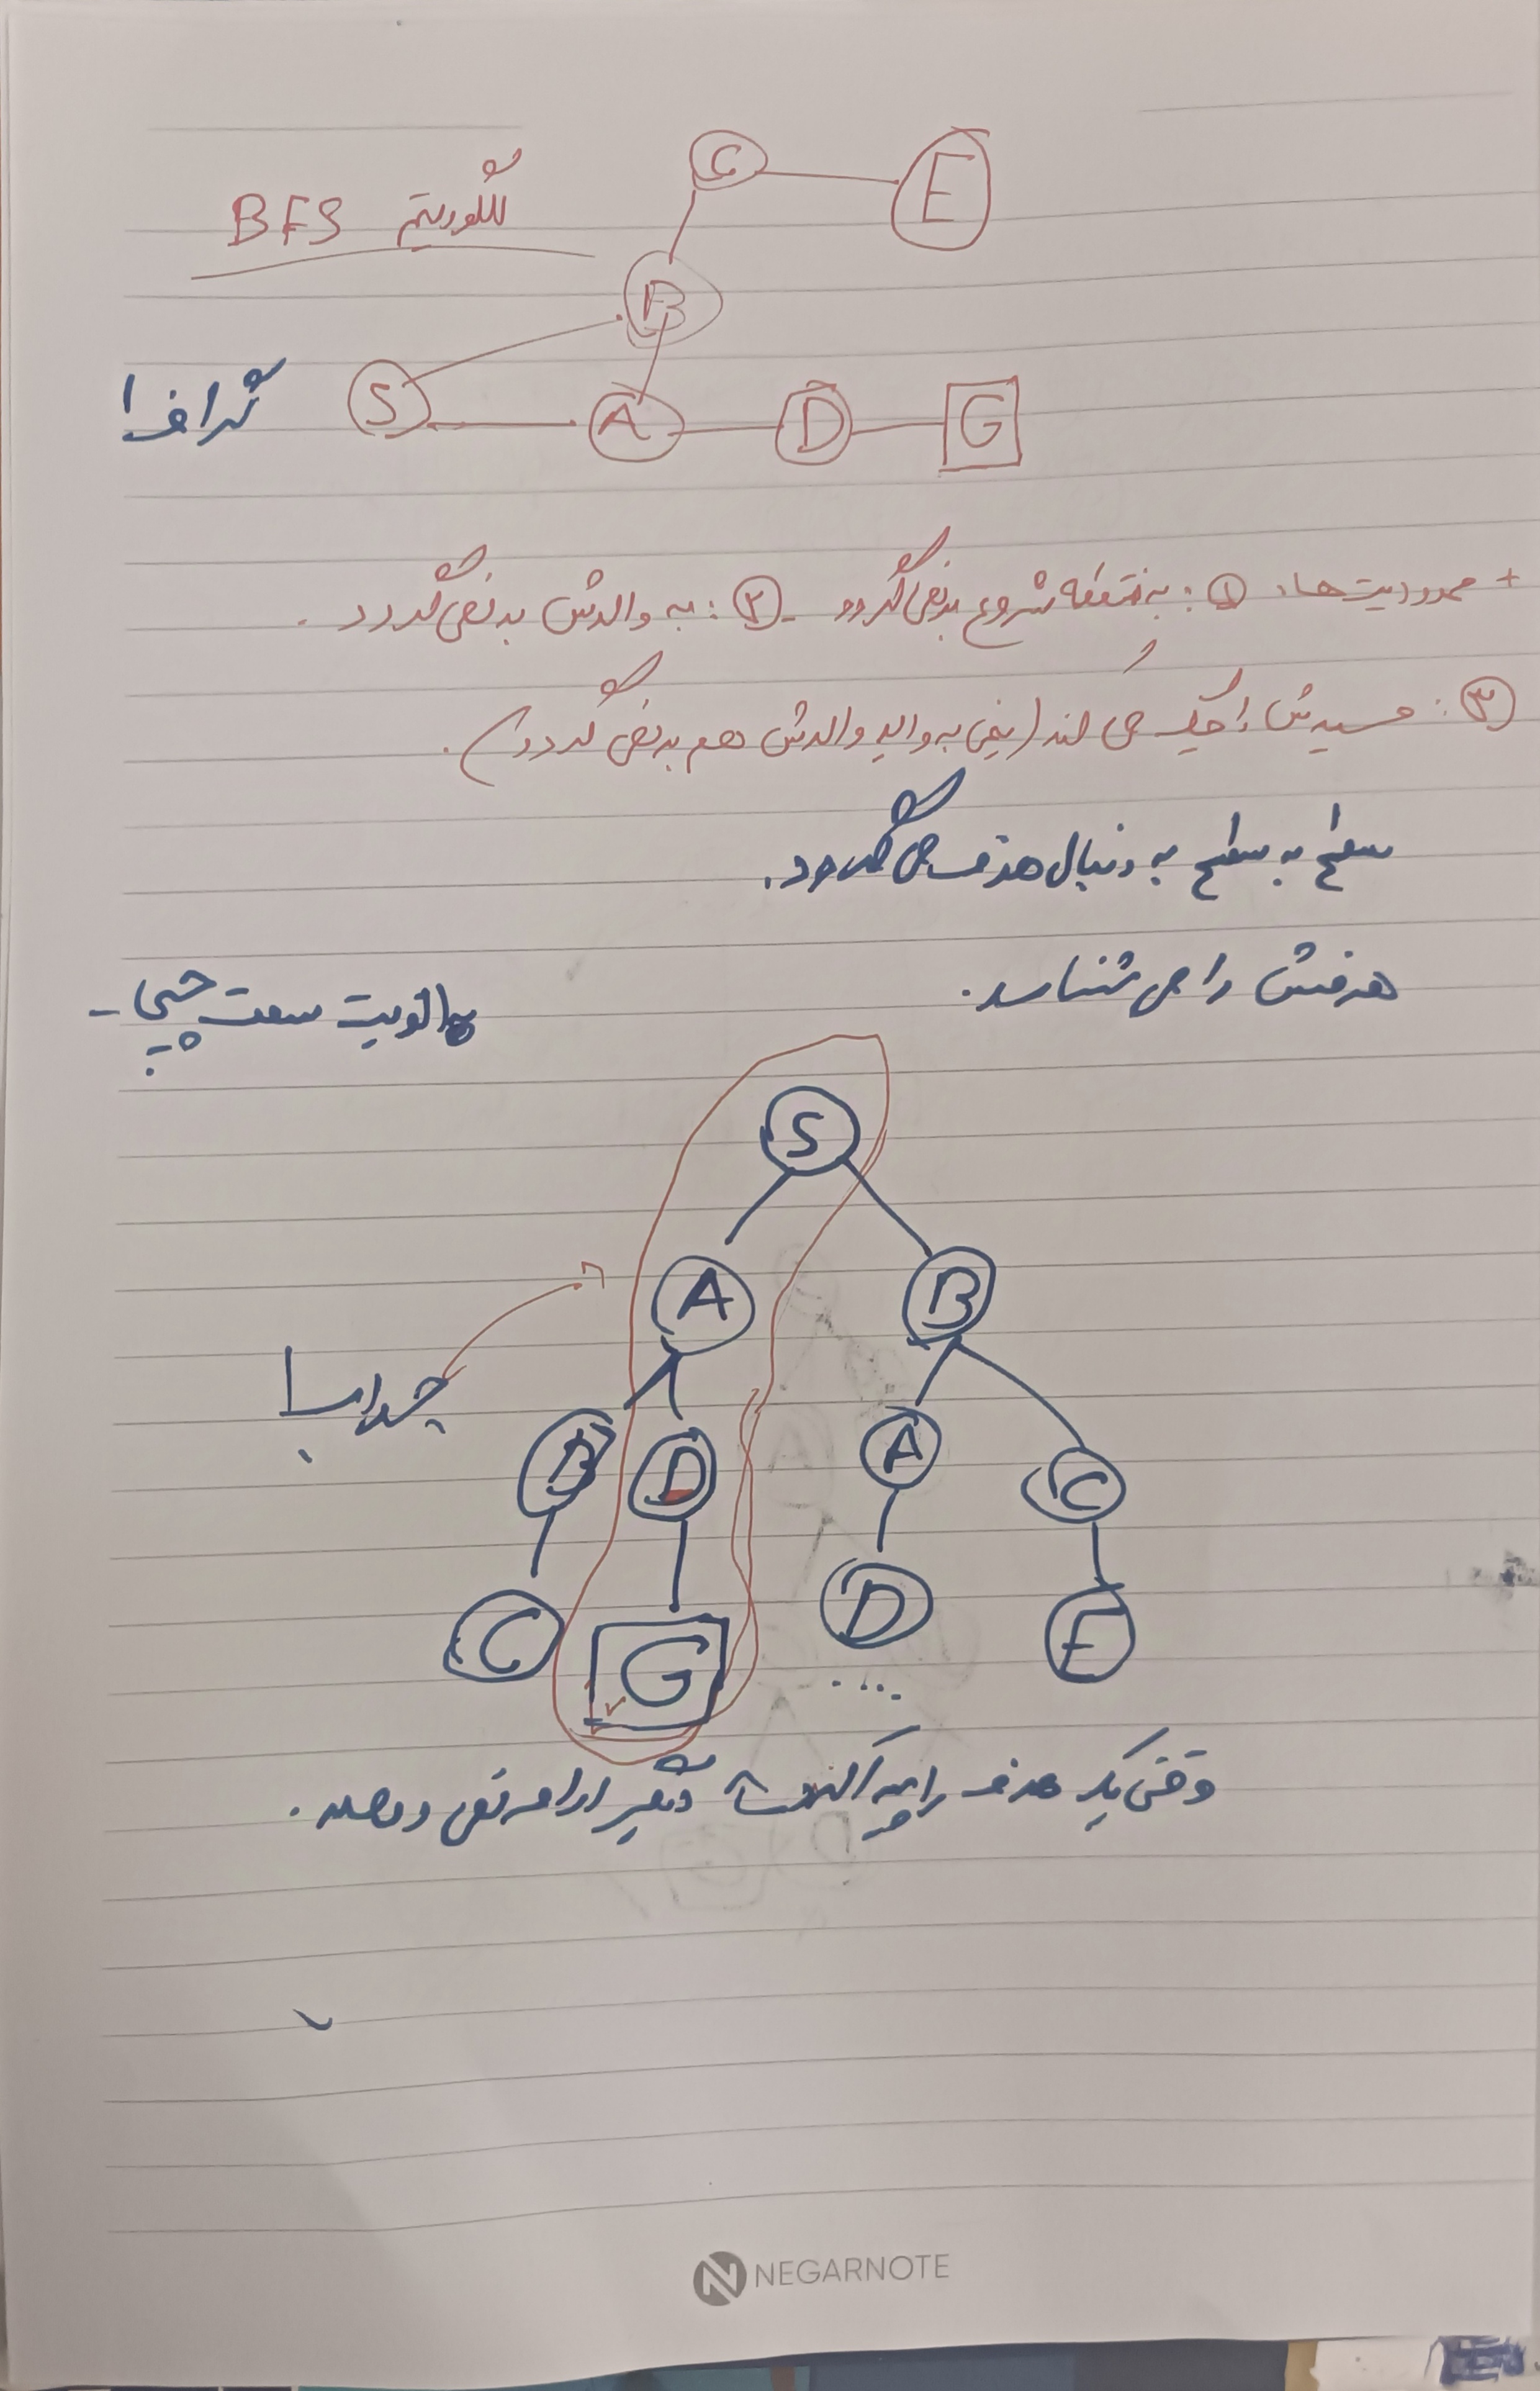 C E
الگوریتم BFS
B
گراف ا
S A D G
+ محدودیت‌ها: ①: به نقطه شروع برنمی‌گردد - ②: به والدش برنمی‌گردد.
③: مسیرش را چک می‌کند (یعنی به والدِ والدش هم برنمی‌گردد).
سطح به سطح به دنبال هدف می‌گردد.
هدفش را می‌شناسد.
به الویت سمت چپی -
S
A B
جواب
B D A C
C G D E
....
وقتی یک هدف را پیدا کند دیگر ادامه نمی‌دهد.
NEGARNOTE